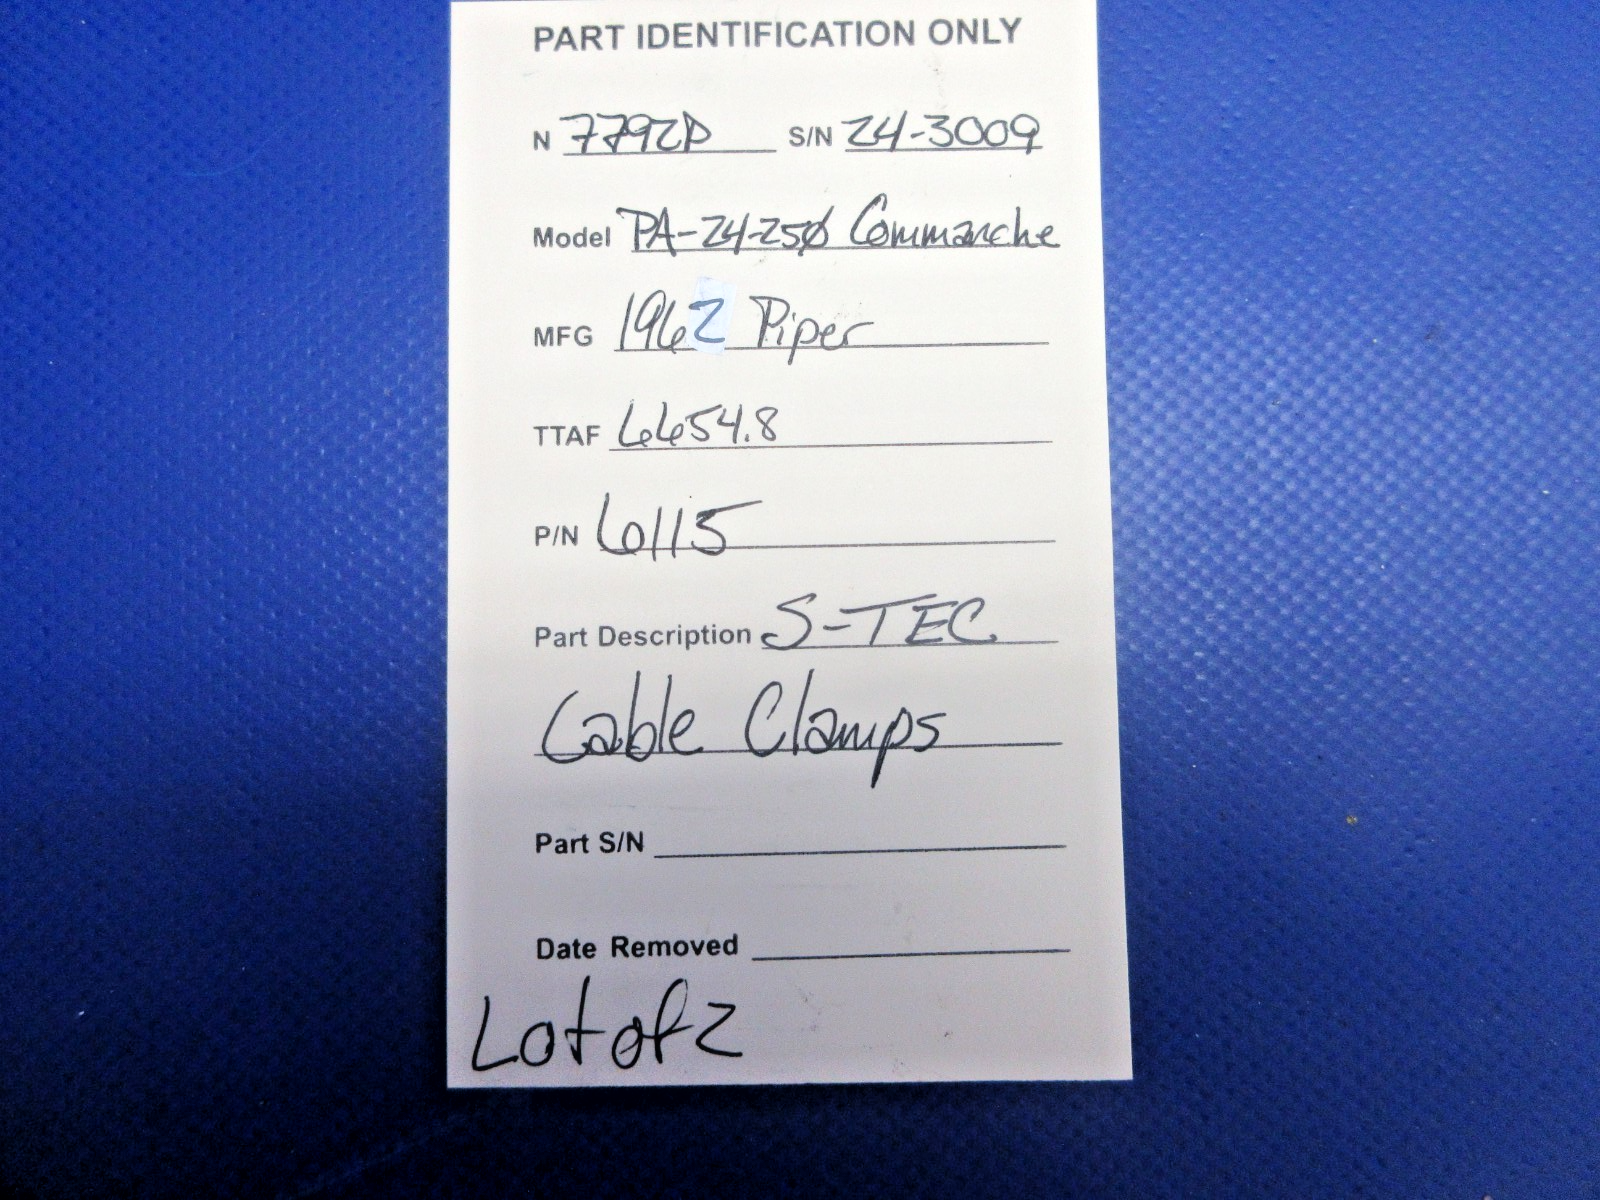 PART IDENTIFICATION ONLY
N 7792P S/N 24-3009
Model PA-24-250 Commanche
MFG 1962 Piper
TTAF 6654.8
P/N 6115
Part Description S-TEC
Cable Clamps
Part S/N
Date Removed
Lot of 2